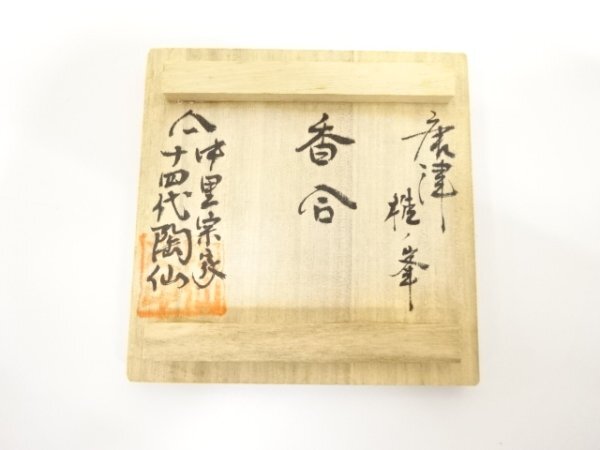 唐津
椎ノ峯
香合
中里宗家
十四代陶仙